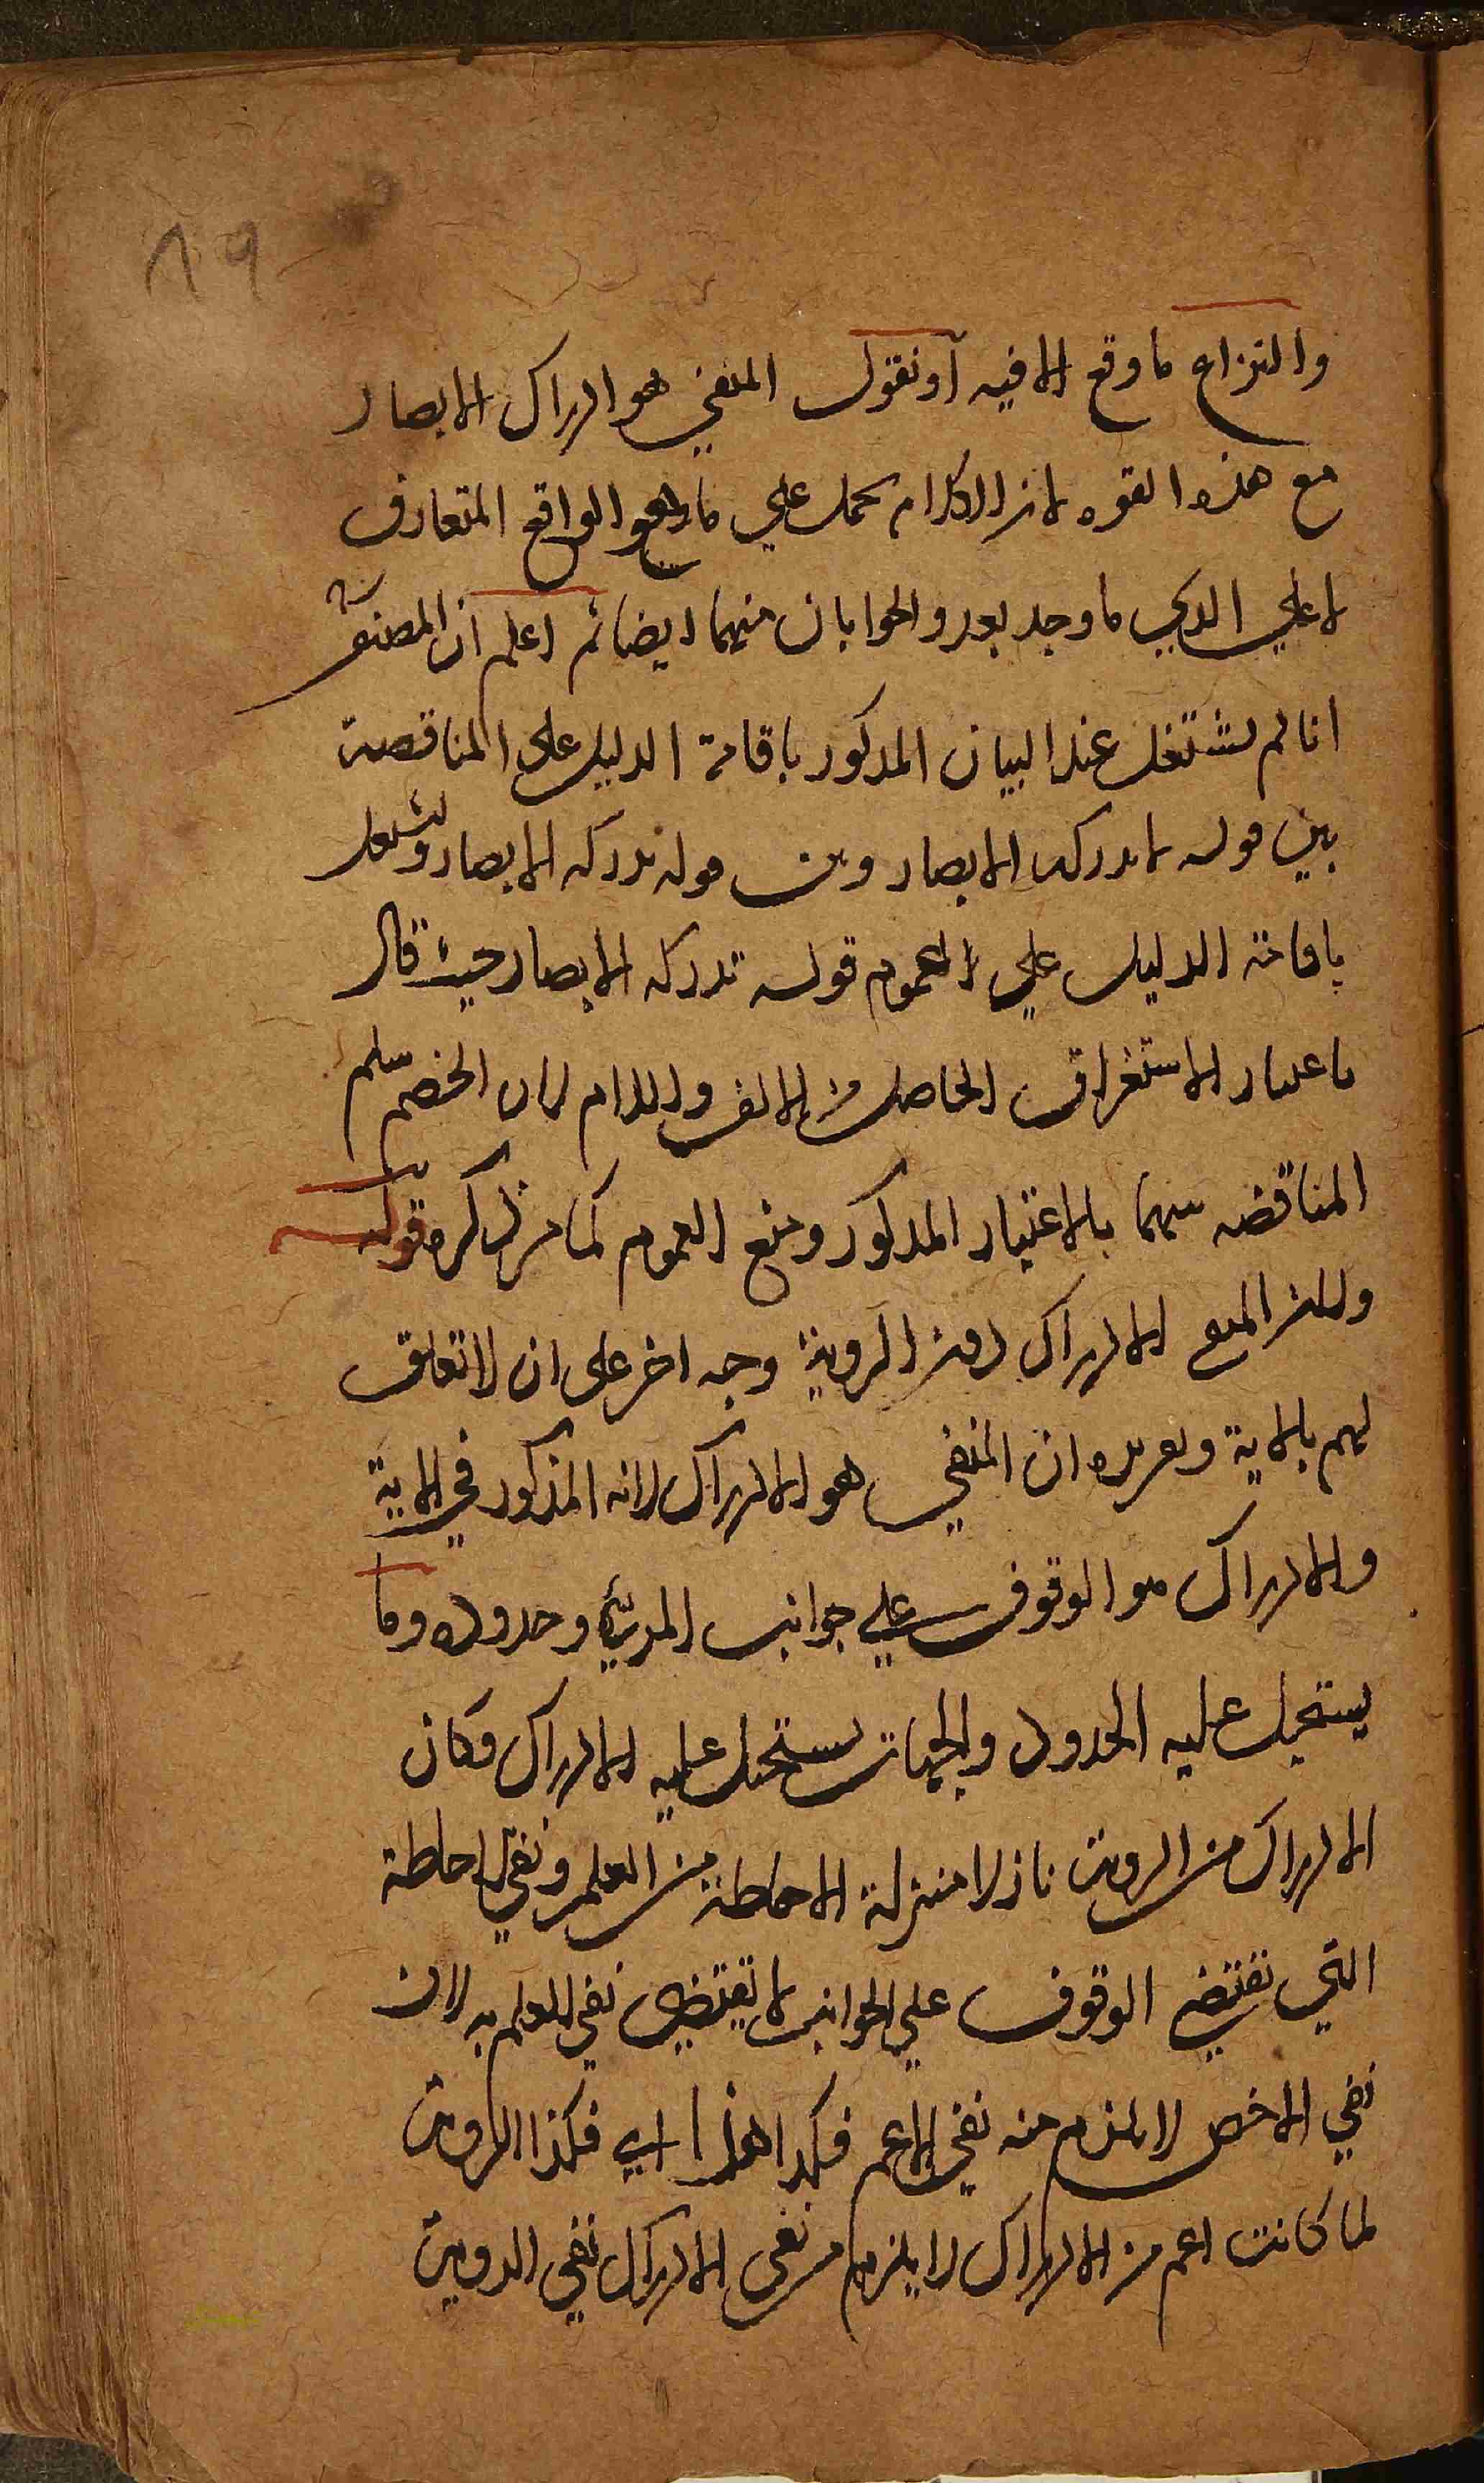 ٨٩
والنزاع ما وقع الا فيه أو نقول المنفي هو ادراك الابصار
مع هذه القوه لان الكلام يحمل علي ما هو الواقع المتعارف
لا علي الذي ما وجد بعد والجوابان منهما ايضا ثم اعلم ان المصنف
انما لم يشتغل عند البيان المذكور باقامة الدليل علي المناقضة
بين قوله لا تدركه الابصار وبين قوله تدركه الابصار ويشتغل
باقامة الدليل علي العموم قوله تدركه الابصار حيث قال
باعتبار الاستغراق الحاصل من الالف واللام لان الخصم سلم
المناقضه بينهما بالاعتبار المذكور ومنع العموم كما مر ذكره قوله
ولان المنع الادراك دون الروية وجه اخر علي ان لا تعلق
لهم بالاية وتقريره ان المنفي هو الادراك لانه المذكور في الاية
والادراك هو الوقوف علي جوانب المرئي وحدوده وما
يستحيل عليه الحدود والجهات يستحيل عليه الادراك فكان
الادراك من الروية نازلا منزلة الاحاطة من العلم ونفي الاحاطة
التي تقتضي الوقوف علي الجوانب لا يقتضي نفي العلم به لان
نفي الاخص لا يلزم منه نفي الاعم فكذا هذا اي فكذا الروية
لما كانت اعم من الادراك لا يلزم من نفي الادراك نفي الروية